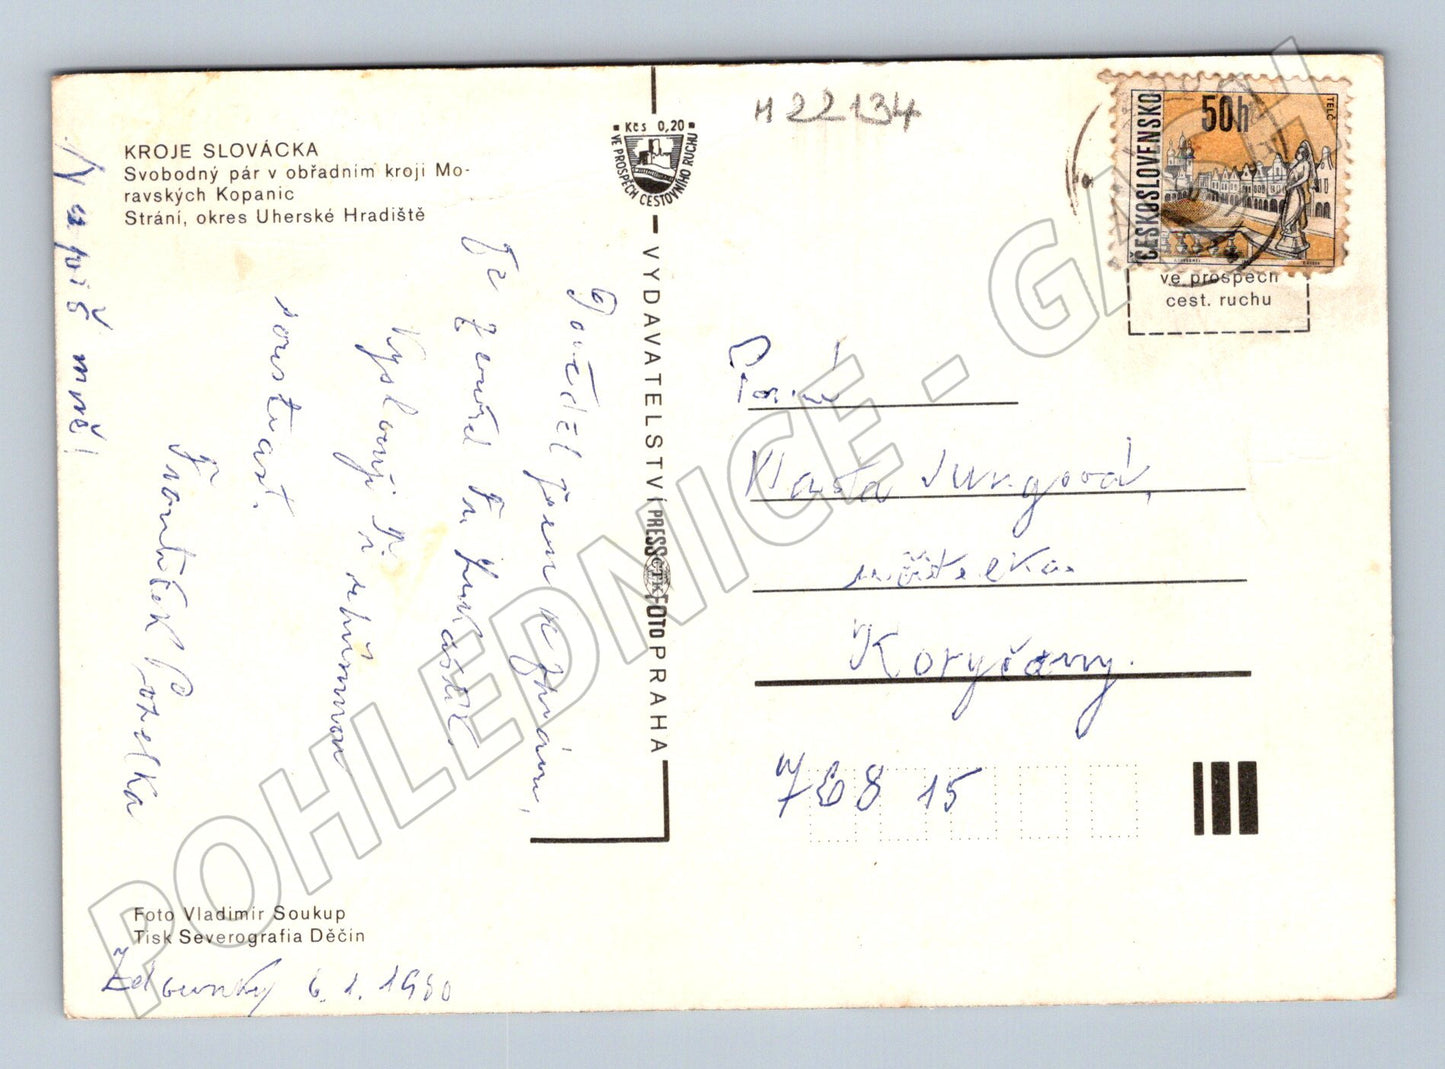 M 22134
KROJE SLOVÁCKA
Svobodný pár v obřadním kroji Mo-
ravských Kopanic
Strání, okres Uherské Hradiště
Kčs 0,20
VE PROSPĚCH CESTOVNÍHO RUCHU
VYDAVATELSTVÍ PRESSFOTO PRAHA
ČTK
ČESKOSLOVENSKO
50h
TELČ
ve prospěch
cest. ruchu
jsem
že zemřel
Vyslovuji Ti upřímnou
soustrast.
František
a piš mně!
Vlasta Jungová,
učitelka
Koryčany.
768 15
Foto Vladimír Soukup
Tisk Severografia Děčín
Zdounky 6.1.1980
POHLEDNICE - GACH